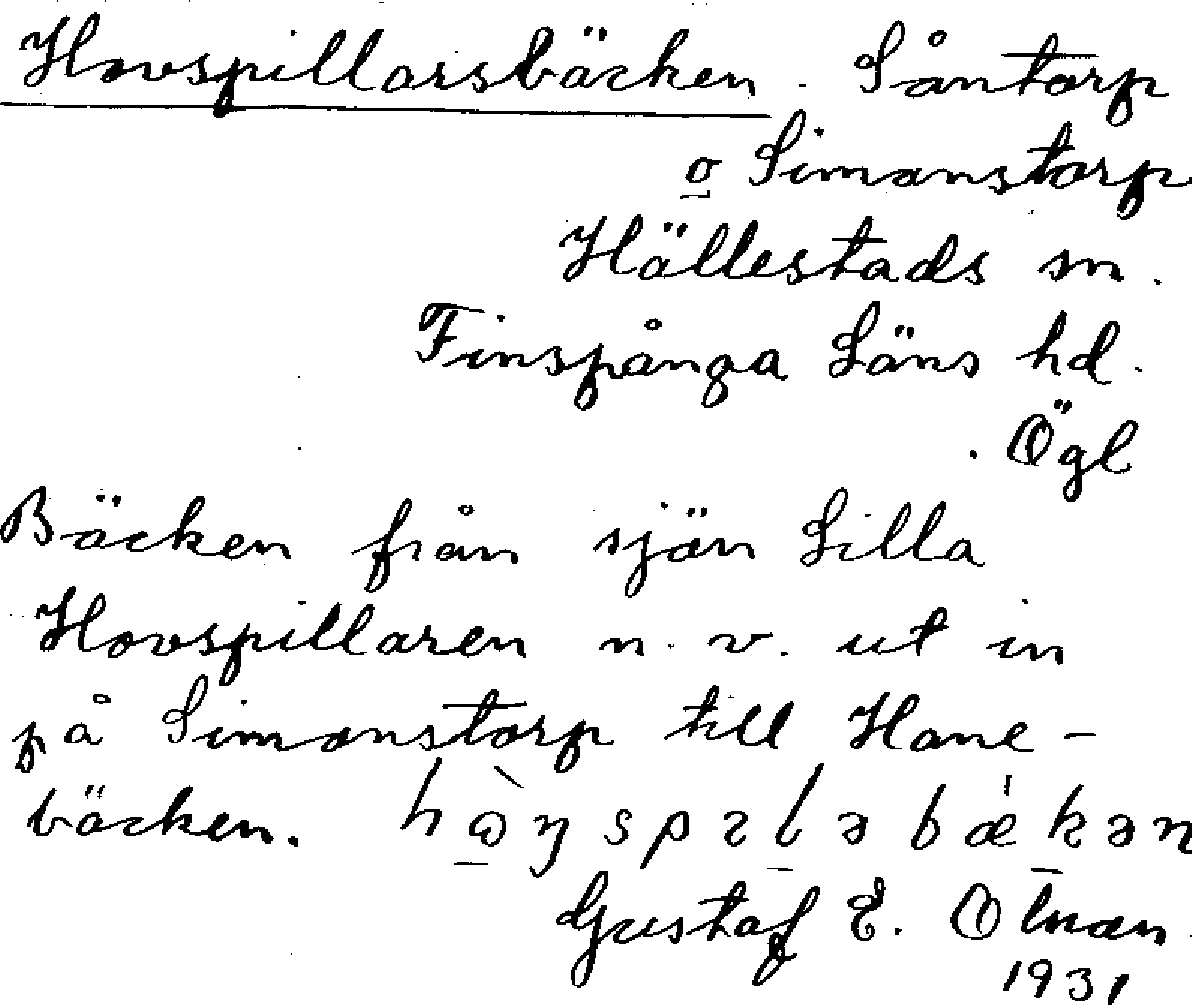 Hovspillarsbäcken. Såntorp
o Simonstorp
Hällestads sn.
Finspånga Läns hd.
Ögl
Bäcken från sjön Lilla
Hovspillaren n. v. ut in
på Simonstorp till Hane-
bäcken.
Gustaf E.
1931